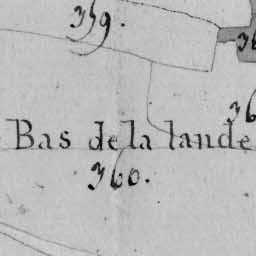 359.
Bas de la lande
360.